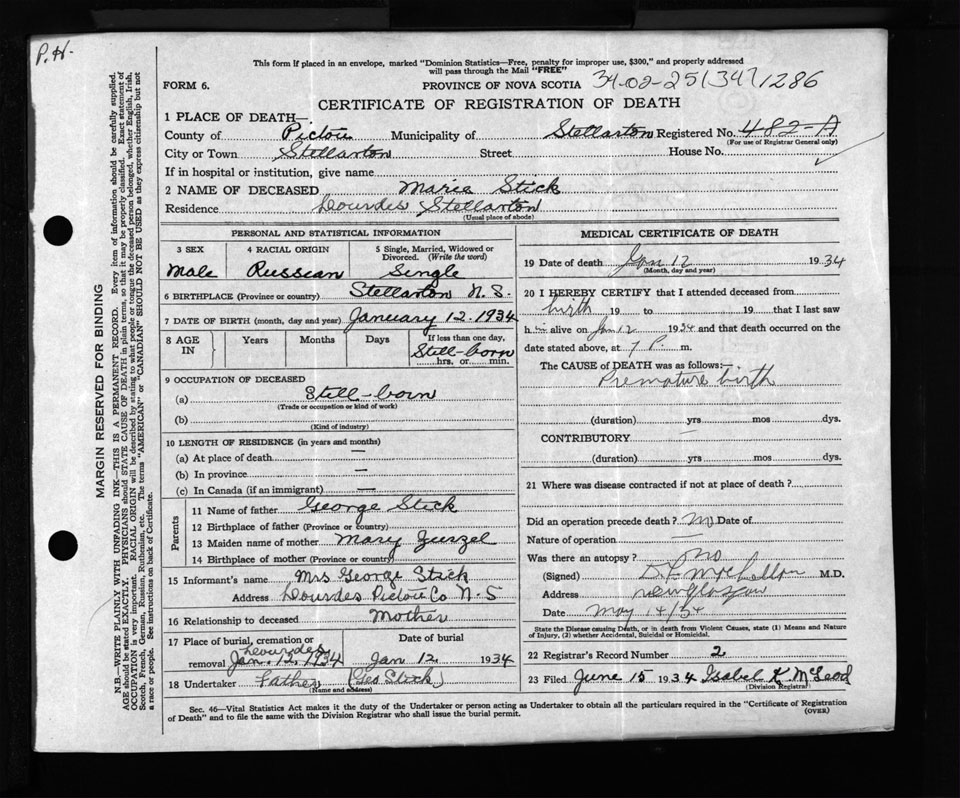 P.H.
This form if placed in an envelope, marked "Dominion Statistics—Free, penalty for improper use, $300," and properly addressed
will pass through the Mail "FREE"
FORM 6.
PROVINCE OF NOVA SCOTIA
34-02-25(347)1286
CERTIFICATE OF REGISTRATION OF DEATH
1 PLACE OF DEATH—
County of Pictou Municipality of Stellarton Registered No. 482-A
(For use of Registrar General only)
City or Town Stellarton Street House No.
If in hospital or institution, give name
2 NAME OF DECEASED Maria Stick
Residence Lourdes Stellarton
(Usual place of abode)
PERSONAL AND STATISTICAL INFORMATION
3 SEX 4 RACIAL ORIGIN 5 Single, Married, Widowed or
Divorced. (Write the word)
Male Russian Single
6 BIRTHPLACE (Province or country) Stellarton N.S.
7 DATE OF BIRTH (month, day and year) January 12, 1934
8 AGE IN Years Months Days If less than one day,
Still-born
hrs. or min.
9 OCCUPATION OF DECEASED
(a) Still-born
(Trade or occupation or kind of work)
(b)
(Kind of industry)
10 LENGTH OF RESIDENCE (in years and months)
(a) At place of death —
(b) In province —
(c) In Canada (if an immigrant) —
Parents
11 Name of father George Stick
12 Birthplace of father (Province or country)
13 Maiden name of mother Mary
14 Birthplace of mother (Province or country)
15 Informant's name Mrs George Stick
Address Lourdes Pictou Co N.S
16 Relationship to deceased Mother
17 Place of burial, cremation or Date of burial
Lourdes
removal Jan. 12, 1934 Jan 12 1934
18 Undertaker Father (Geo Stick)
(Name and address)
MEDICAL CERTIFICATE OF DEATH
19 Date of death Jan 12 1934
(Month, day and year)
20 I HEREBY CERTIFY that I attended deceased from
birth 19 to 19 that I last saw
h alive on Jan 12 1934 and that death occurred on the
date stated above, at 7 P. m.
The CAUSE of DEATH was as follows:—
Premature birth
(duration) yrs mos dys.
CONTRIBUTORY —
(duration) yrs mos dys.
21 Where was disease contracted if not at place of death?
Did an operation precede death? no Date of
Nature of operation —
Was there an autopsy? no
(Signed) M.D.
Address New Glasgow
Date May 14/34
State the Disease causing Death, or in death from Violent Causes, state (1) Means and Nature
of Injury, (2) whether Accidental, Suicidal or Homicidal.
22 Registrar's Record Number 2
23 Filed June 15 1934 Isabel K McLeod
(Division Registrar)
Sec. 46—Vital Statistics Act makes it the duty of the Undertaker or person acting as Undertaker to obtain all the particulars required in the "Certificate of Registration
of Death" and to file the same with the Division Registrar who shall issue the burial permit.
(OVER)
MARGIN RESERVED FOR BINDING
N.B.—WRITE PLAINLY WITH UNFADING INK—THIS IS A PERMANENT RECORD. Every item of information should be carefully supplied.
AGE should be stated EXACTLY. PHYSICIANS should STATE CAUSE OF DEATH in plain terms, so that it may be properly classified. Exact statement of
OCCUPATION is very important. RACIAL ORIGIN will be described by stating to what people or tongue the deceased person belonged, whether English, Irish,
Scotch, French, German, Russian, Ruthenian, etc. The terms "AMERICAN" or "CANADIAN" SHOULD NOT BE USED as they express citizenship but not
a race or people. See instructions on back of Certificate.